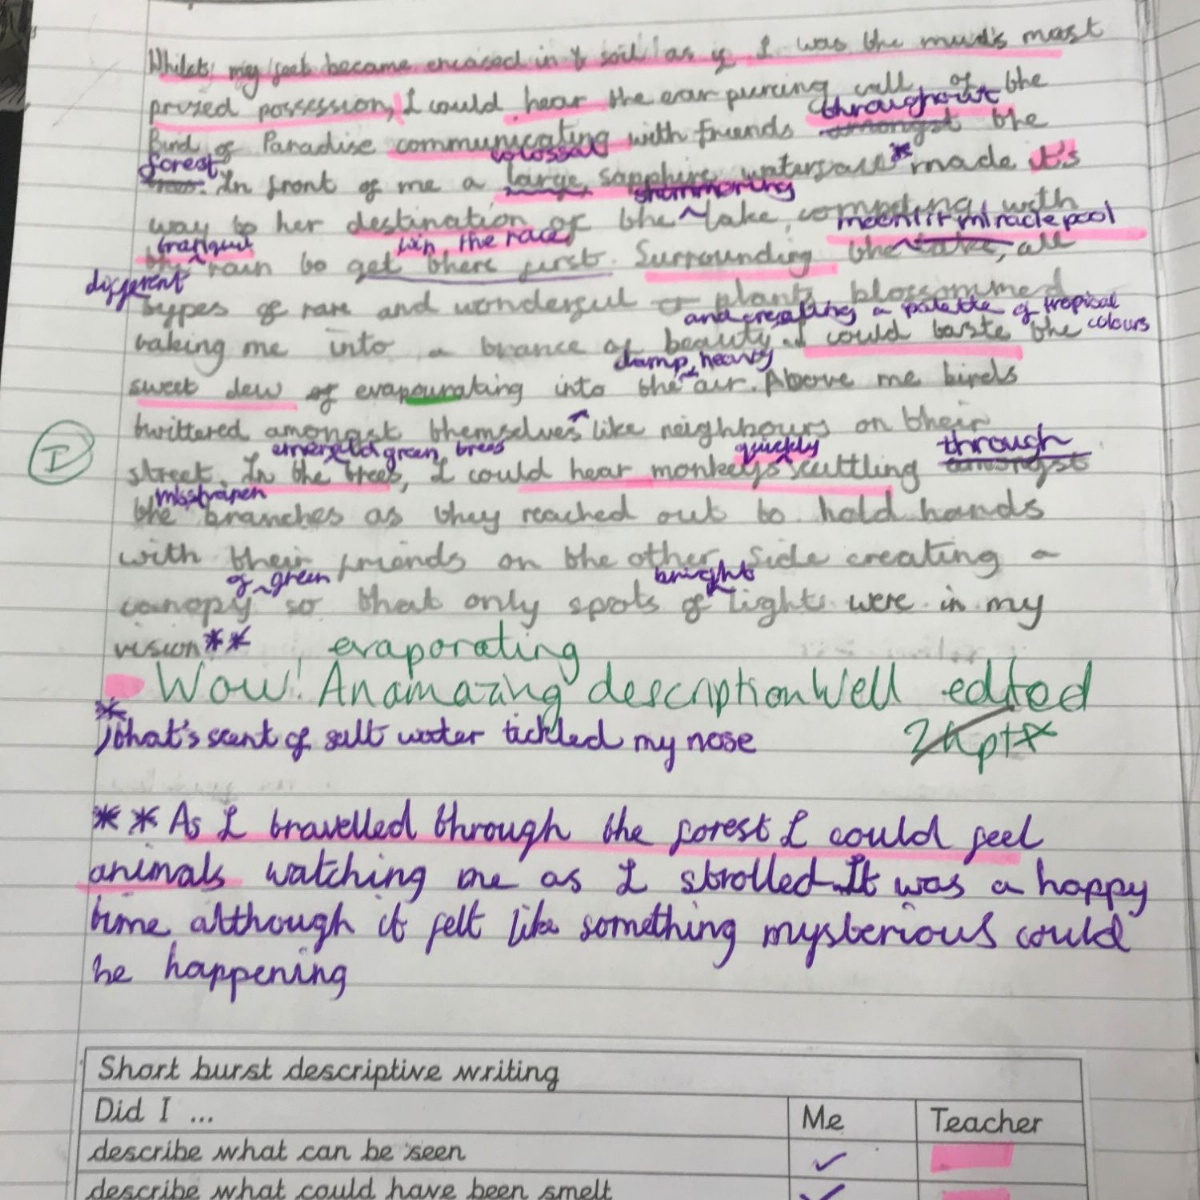 Whilsts my feet became encased in soil as if I was the mud's most
prized possession, I could hear the ear piercing call of the
throughout
Bird of Paradise communicating with friends amongst the
forest colossal *
In front of me a large, sapphire waterfall made it's
shimmering
way to her destination of the lake, competing with
tranquil win the race moonlit miracle pool
the rain to get there first. Surrounding the lake, all
different
types of rare and wonderful plants blossommed
and creating a palette of tropical colours
taking me into a trance of beauty. I could taste the
damp, heavy
sweet dew of evapourating into the air. Above me birds
twittered amongst themselves like neighbours on their
emerald green trees quickly through
street. In the trees, I could hear monkeys scuttling amongst
I
misshapen
the branches as they reached out to hold hands
with their friends on the other side creating a
of green bright
canopy so that only spots of lights were in my
vision**
evaporating
Wow! An amazing description Well edted
*
, that's scent of salt water tickled my nose
** As I travelled through the forest I could feel
animals watching me as I strolled. It was a happy
time although it felt like something mysterious could
be happening
Short burst descriptive writing
Did I ... Me Teacher
describe what can be seen ✓
describe what could have been smelt ✓